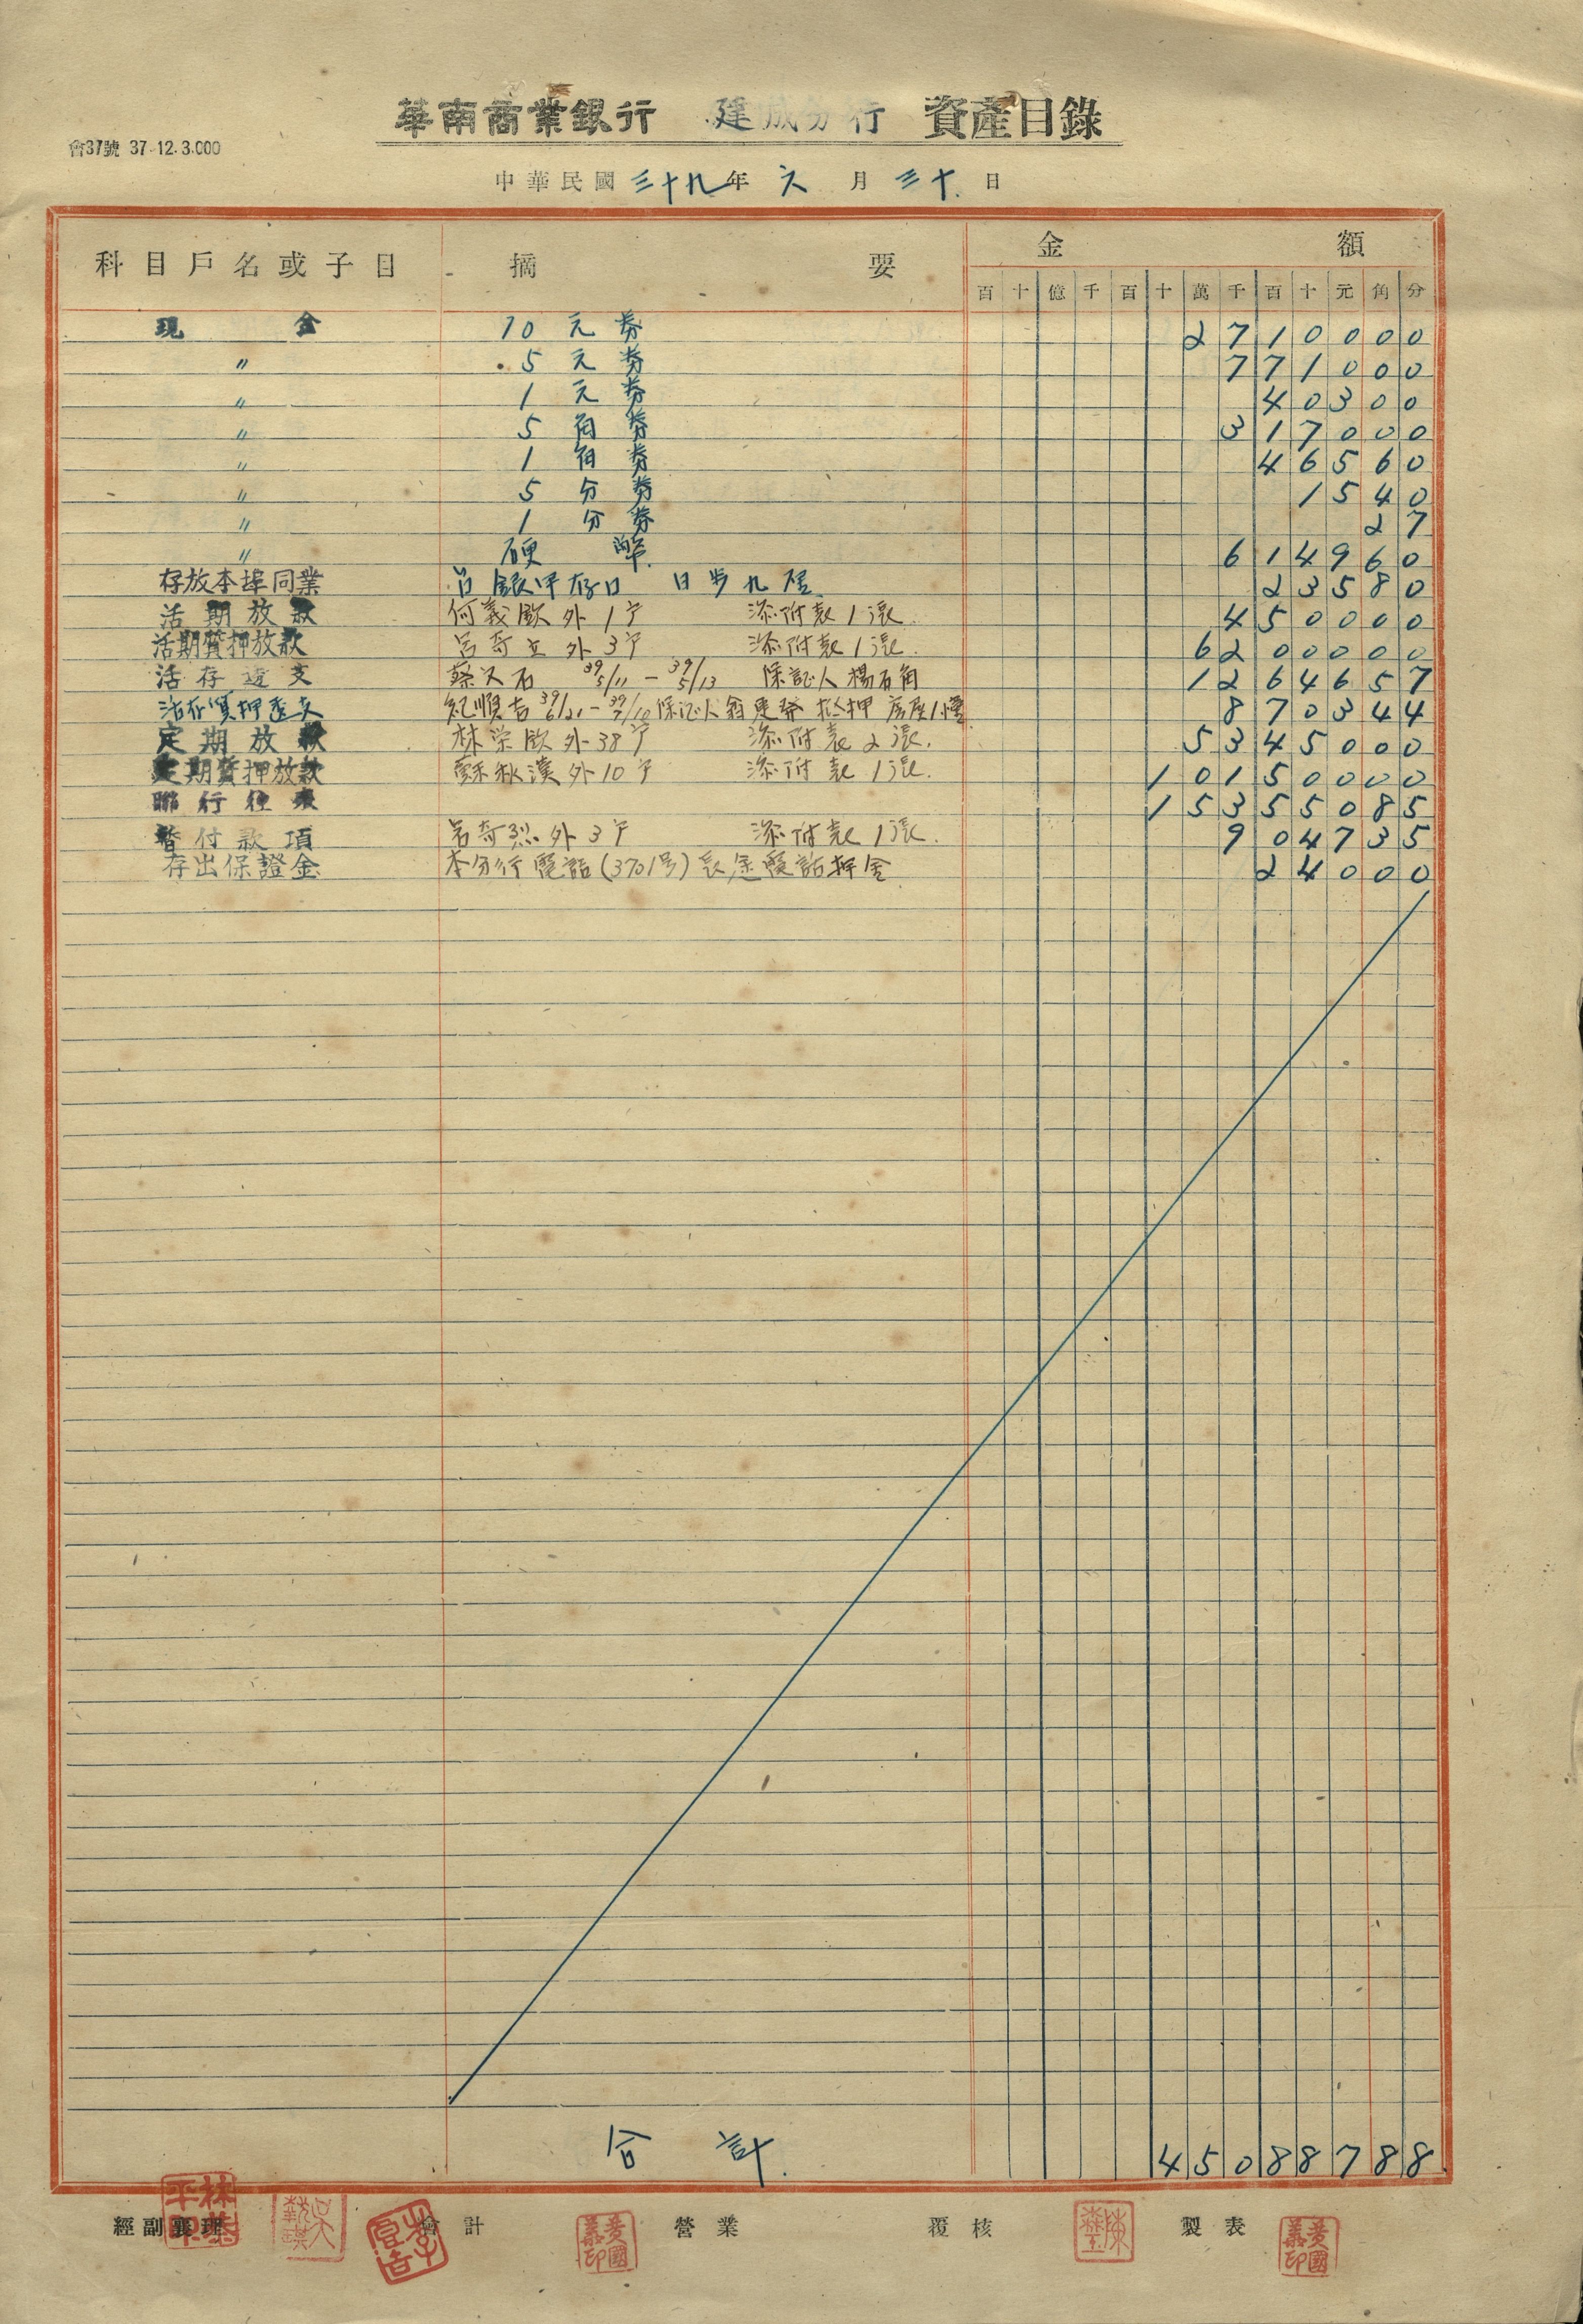 華南商業銀行 建成分行 資產目錄
會37號 37.12.3.000
中華民國三十九年六月三十日
科目戶名或子目 摘要 金額
百十億千百十萬千百十元角分
現金 10元券 2710000
〃 5元券 771000
〃 1元券 40300
〃 5角券 317000
〃 1角券 46560
〃 5分券 1540
〃 1分券 27
〃 硬幣 614960
存放本埠同業 台銀甲存口 日步九厘 23580
活期放款 何義欽外1戶 添附表1張 450000
活期質押放款 呂奇立外3戶 添附表1張 6200000
活存透支 蔡汉石 39/5/11-39/5/13 保証人楊石角 1264657
活存質押透支 紀順吉 39/6/21-39/7/10 保証人翁 抵押房屋1棟 870344
定期放款 林荣欽外38戶 添附表2張. 5345000
定期質押放款 蘇秋漢外10戶 添附表1張. 10150000
聯行往來 15355085
暫付款項 呂奇烈外3戶 添附表1張. 904735
存出保證金 本分行電話(3701号)長途電話押金 24000
合計. 45088788
經副襄理 會計 營業 覆核 製表
黃國義印
黃國義印